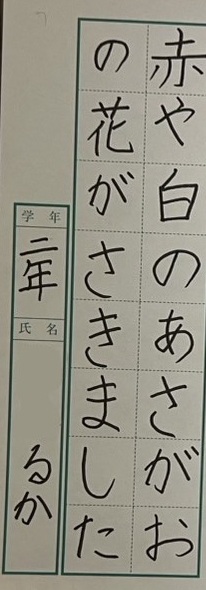 赤や白のあさがお
の花がさきました
学年
二年
氏名
るか